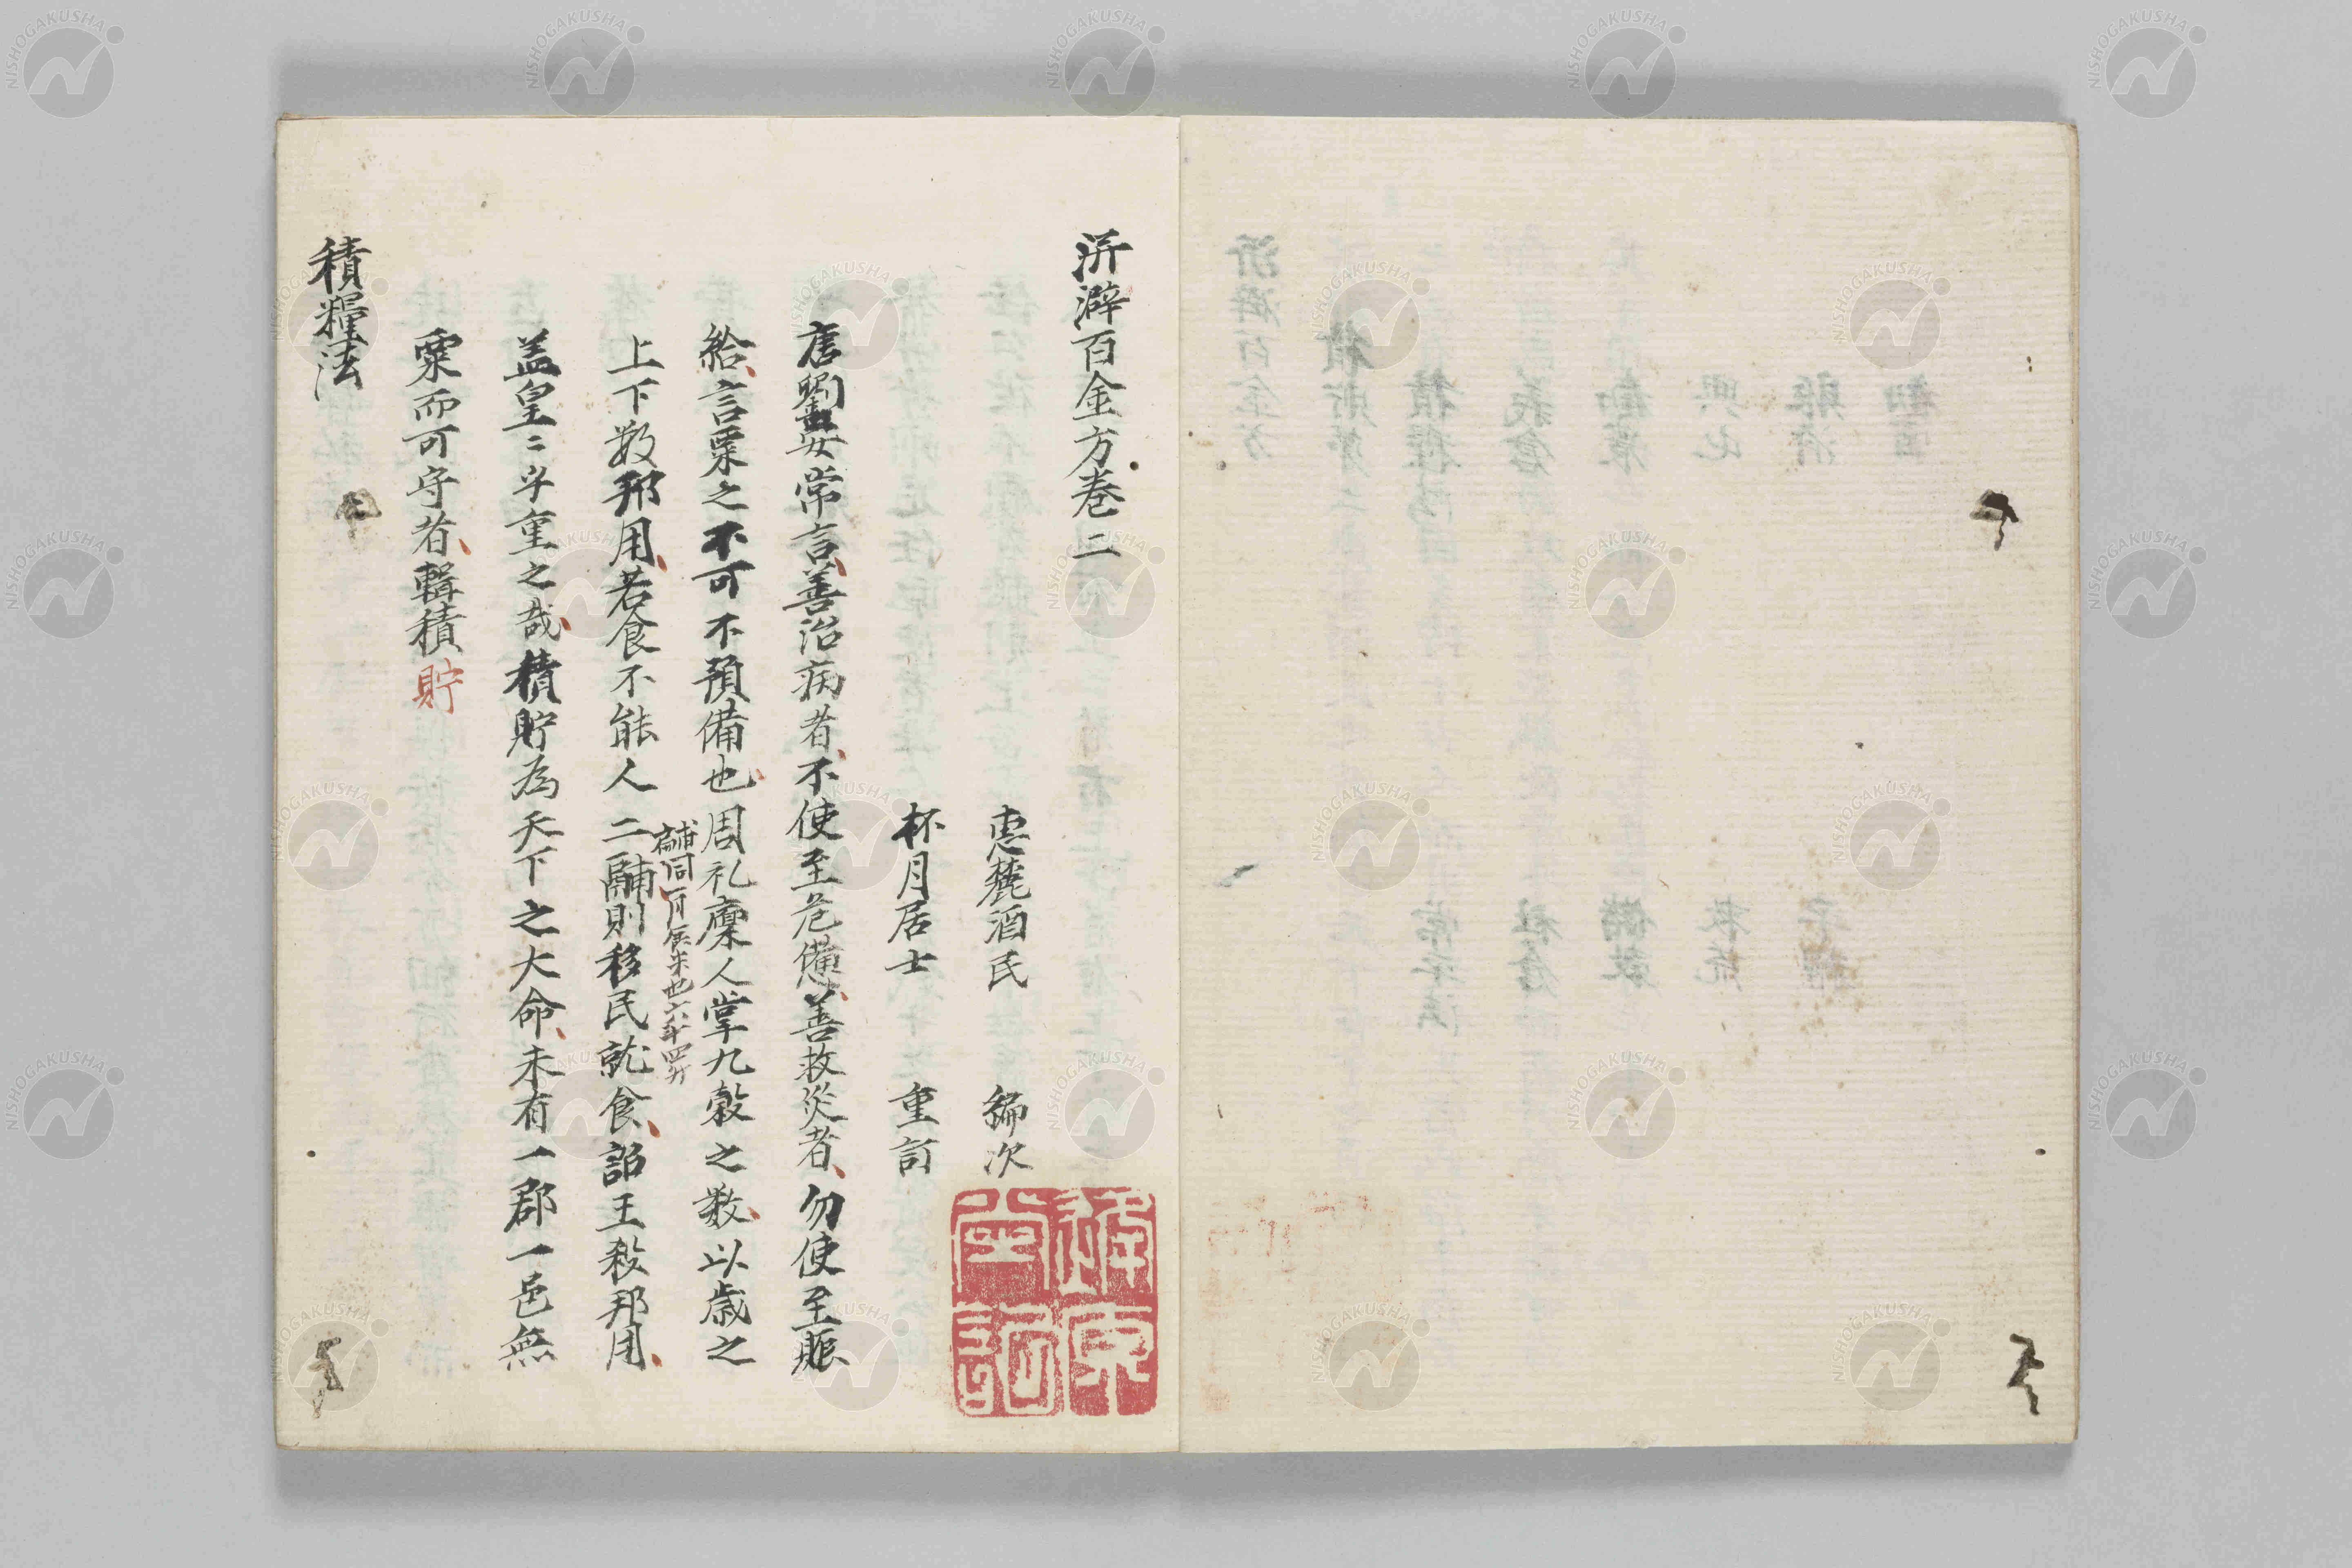 洴澼百金方巻二
惠麓酒民　編次
杯月居士　重訂
唐劉晏常言善治病者、不使至危憊、善救災者、勿使至賑
給、言粟之不可不預備也、周礼廩人掌九穀之数、以歳之
上下数邦用、若食不能人二鬴則移民就食、詔王殺邦用、
鬴同一月食米也六斗四升
盖皇〻乎重之哉、積貯為天下之大命、未有一郡一邑無
粟而可守者、輯積貯
積糧法
NISHOGAKUSHA